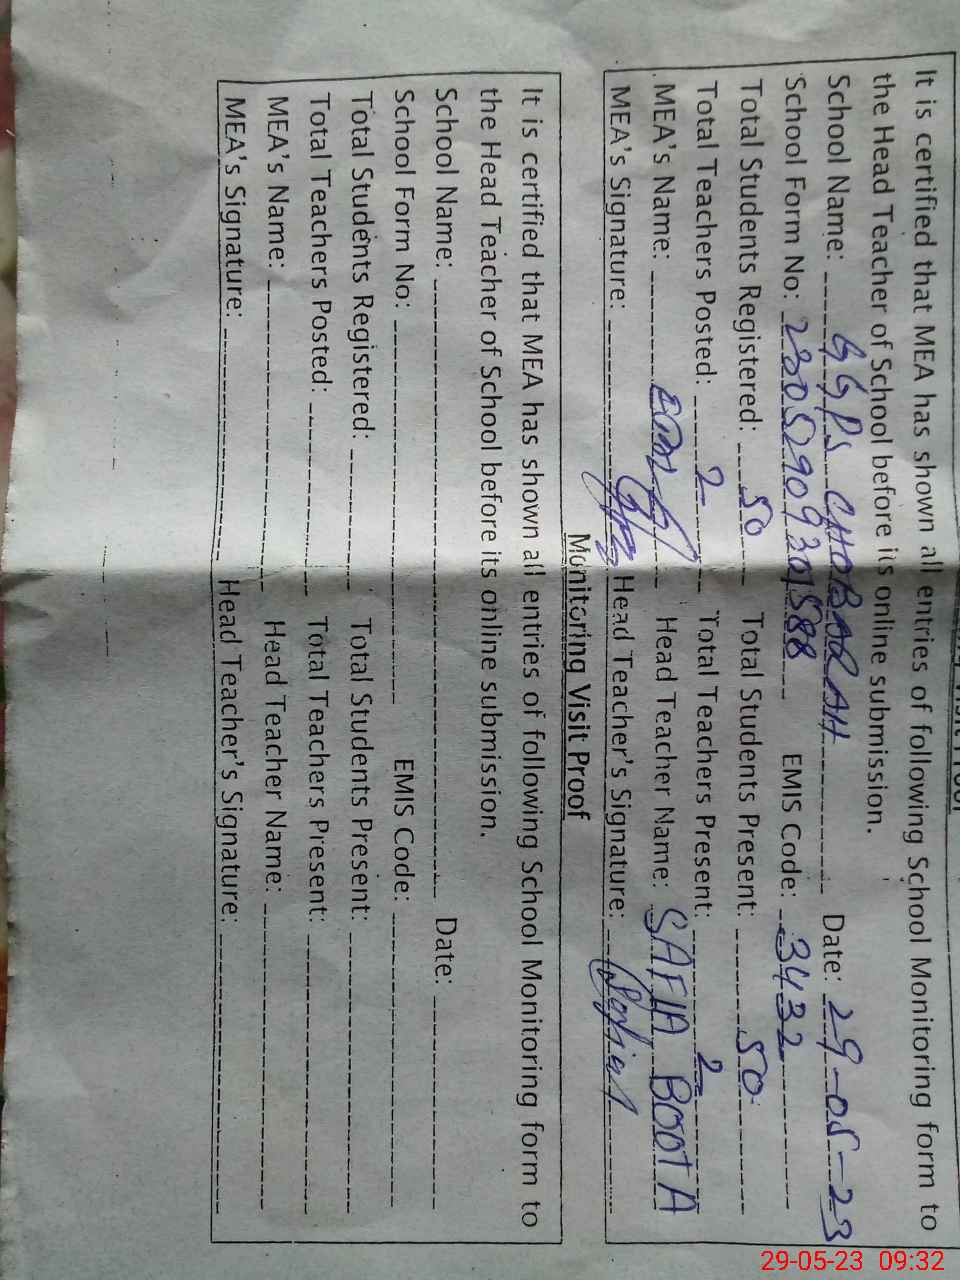 It is certified that MEA has shown all entries of following School Monitoring form to
the Head Teacher of School before its online submission.
School Name: GGPS CHOBORAH Date: 29-05-23
School Form No: EMIS Code: 3432
Total Students Registered: 50 Total Students Present: 50
Total Teachers Posted: 2 Total Teachers Present: 2
MEA's Name: Head Teacher Name: SAFIA BOOTA
MEA's Signature: Head Teacher's Signature:
Monitoring Visit Proof
It is certified that MEA has shown all entries of following School Monitoring form to
the Head Teacher of School before its online submission.
School Name: Date:
School Form No: EMIS Code:
Total Students Registered: Total Students Present:
Total Teachers Posted: Total Teachers Present:
MEA's Name: Head Teacher Name:
MEA's Signature: Head Teacher's Signature:
29-05-23 09:32